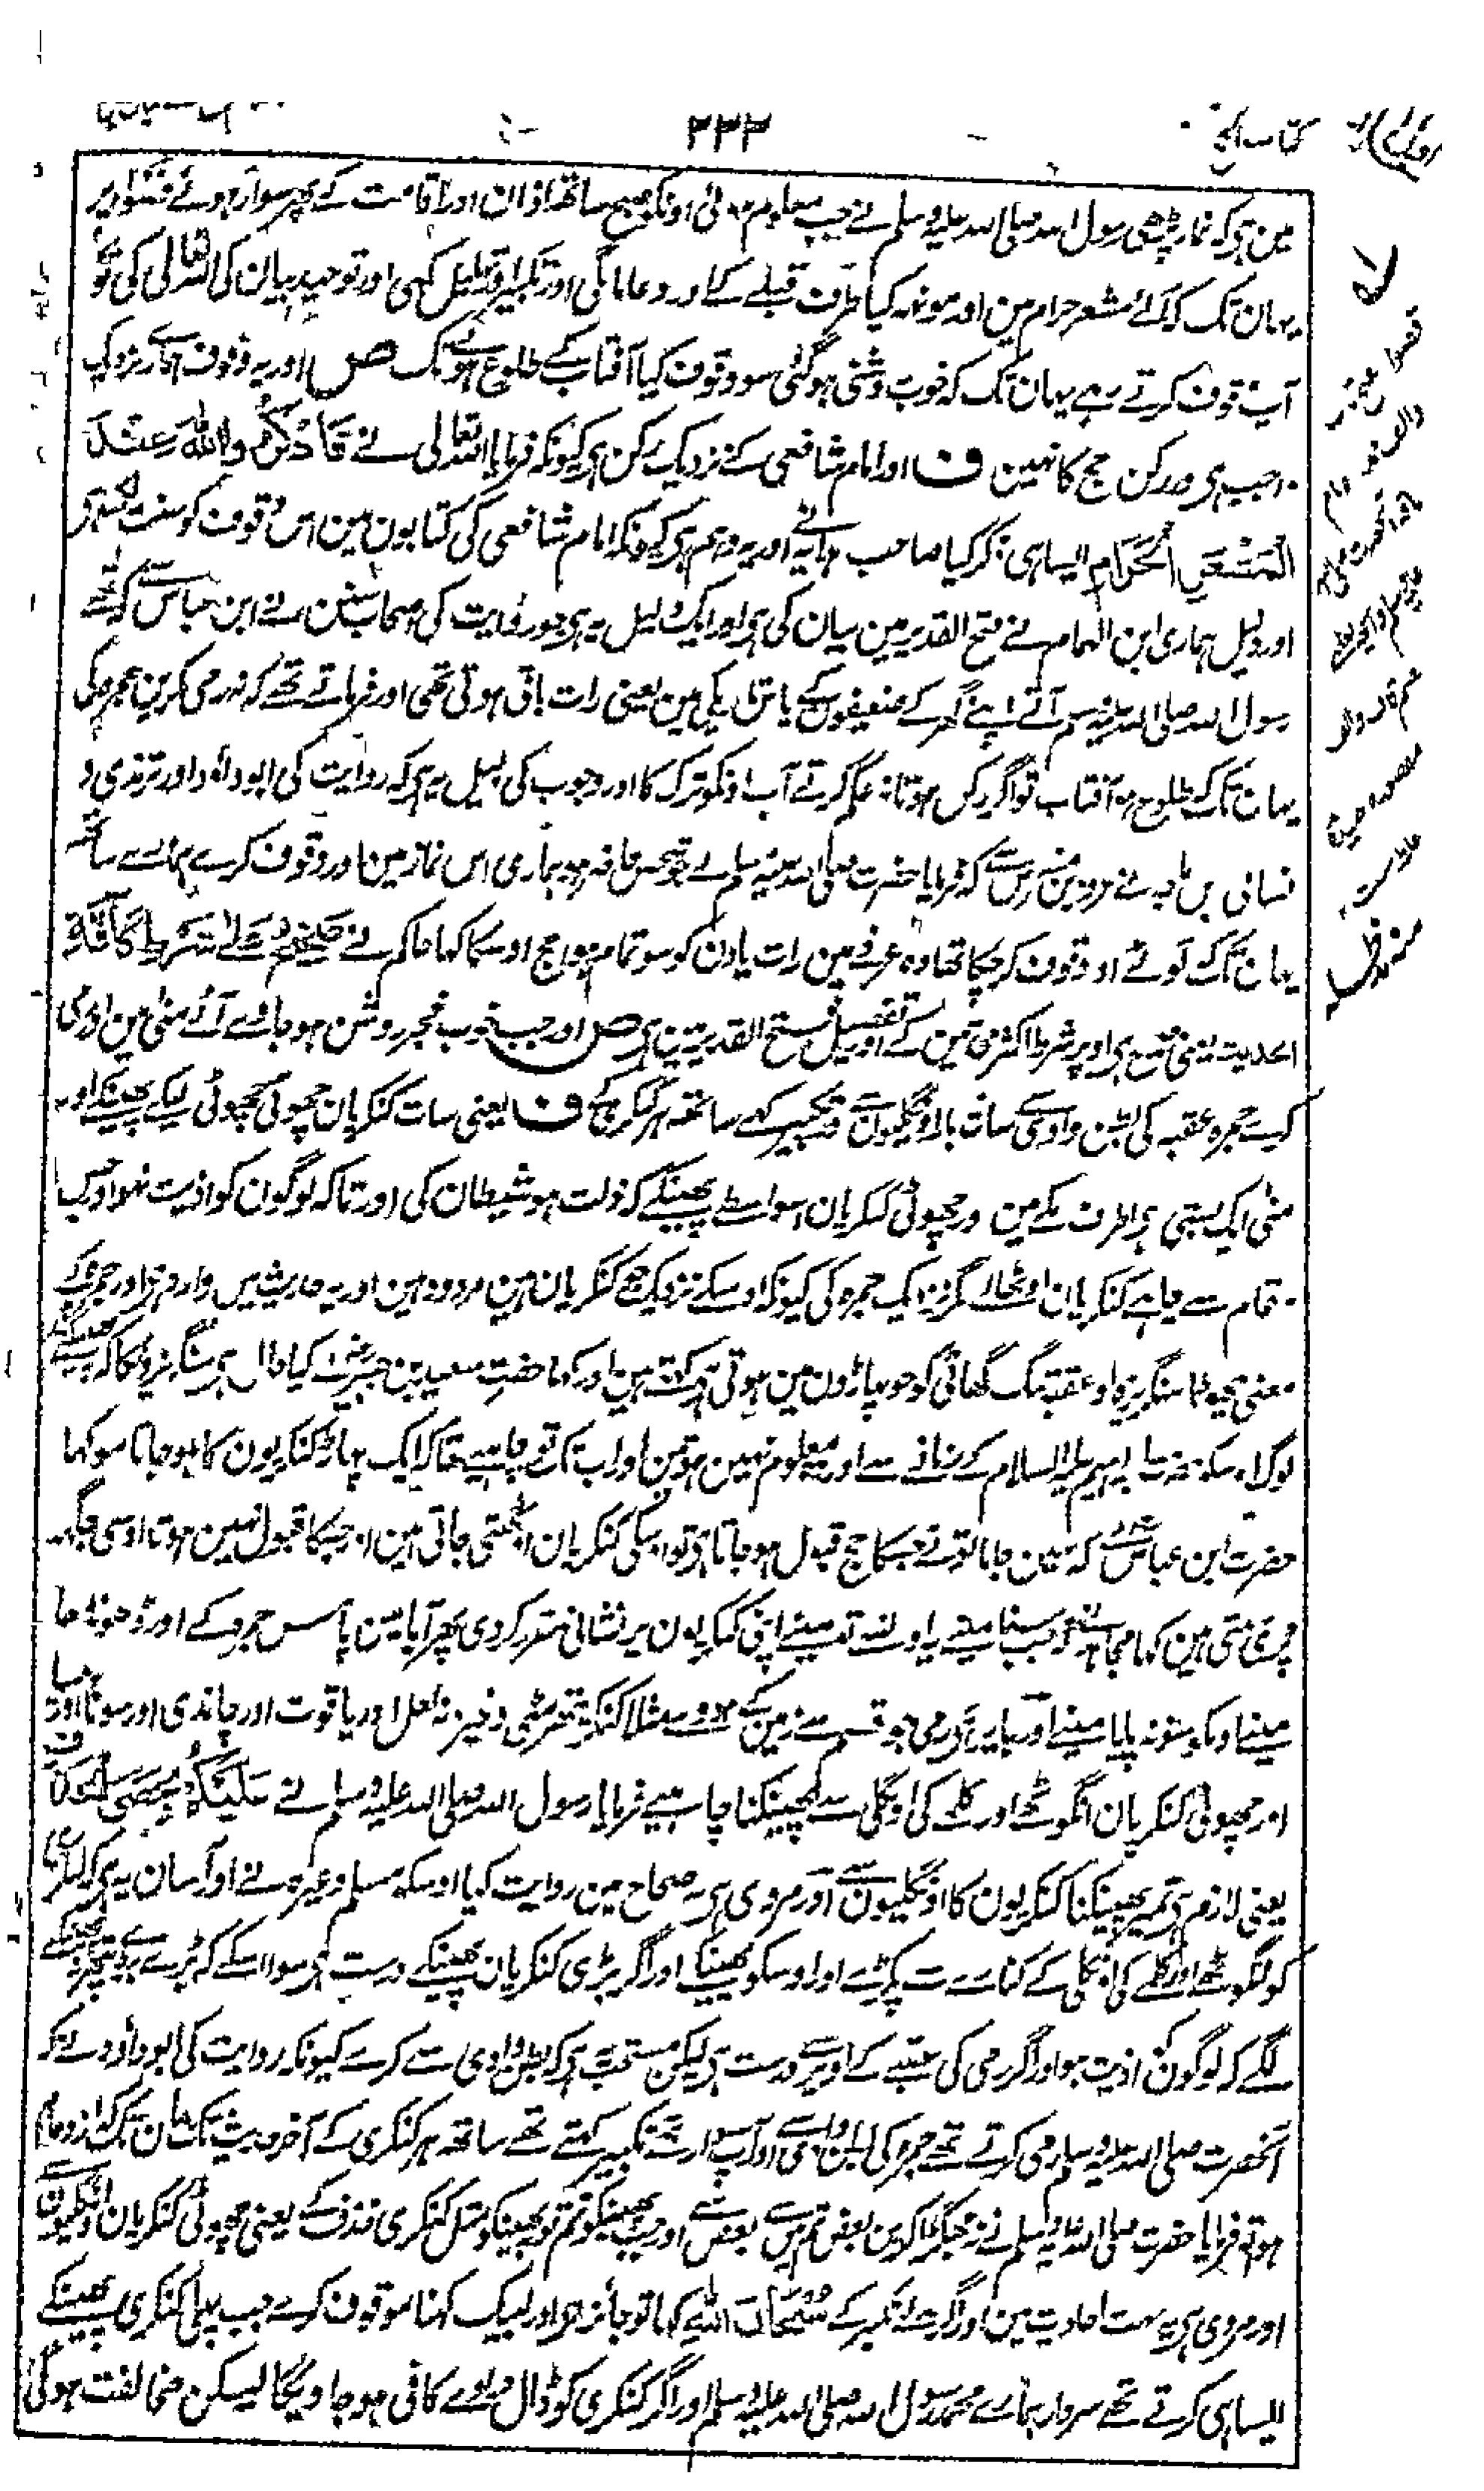 کتاب الحج
۲۳۳
مین ہی کہ نماز پڑھی رسول اللہ صلی اللہ علیہ وسلم نے جب معلوم ہوئی اونکو صبح ساتھ اذان اور اقامت کے پھر سوار ہوئے قصوا پر
یہان تک کہ آئے مشعر حرام مین اور مونہہ کیا طرف قبلے کے اور دعا مانگی اور تکبیر و تہلیل کہی اور توحید بیان کی اللہ تعالی کی تو
آپ وقوف کرتے رہے یہان تک کہ خوب روشنی ہو گئی سو وقوف کیا آفتاب کے طلوع ہونے تک ص اور یہ وقوف ہمارے نزدیک
واجب ہی اور رکن حج کا نہین ف اور امام شافعی کے نزدیک رکن ہی کیونکہ فرمایا اللہ تعالی نے فَاذْكُرُوا اللهَ عِنْدَ
الْمَشْعَرِ الْحَرَامِ ایسا ہی ذکر کیا صاحب ہدایہ نے اور یہ وہم ہی کیونکہ امام شافعی کی کتابون مین اس وقوف کو سنت لکھا ہی
اور دلیل ہماری ابن الہمام نے فتح القدیر مین بیان کی ہی اور ایک دلیل یہ ہی جو روایت کی اصحاب سنن نے ابن عباس سے کہ تھے
رسول اللہ صلی اللہ علیہ وسلم آتے اپنے گھر کے ضعیفون کے پاس تاریکی مین یعنی رات باقی ہوتی تھی اور فرماتے تھے کہ نہ رمی کرین جمرہ کی
یہان تک کہ طلوع ہو آفتاب تو اگر رکن ہوتا نہ حکم کرتے آپ اونکو ترک کا اور وجوب کی دلیل یہ ہی کہ روایت کی ابو داؤد اور ترمذی و
نسائی بن ماجہ نے عروہ بن مضرس سے کہ فرمایا حضرت صلی اللہ علیہ وسلم نے جو شخص حاضر ہو ہماری اس نماز مین اور وقوف کرے ہمارے ساتھ
یہان تک کہ لوٹے اور وقوف کر چکا تھا وہ عرفے مین رات یا دن کو سو تمام ہوا حج اوسکا کہا حاکم نے صَحِیْحٌ عَلٰی شَرْطِ كَافَّةِ
الحدیث یعنی صحیح ہی اوپر شرط اکثر محدثین کے اور تفصیل فتح القدیر مین ہی ص اور جب خوب فجر روشن ہو جاوے آئے منی مین اور رمی
کرے جمرہ عقبہ کی بطن وادی سے سات بار اونگلیون سے تکبیر کہے ساتھ ہر کنکر کے ف یعنی سات کنکریان چھوٹی چھوٹی لیکے پھینکے اور
منی ایک بستی ہی طرف مکے مین اور چھوٹی کنکریان اسواسطے پھینکے کہ ذلت ہو شیطان کی اور تاکہ لوگون کو اذیت نہو اور جس
مقام سے چاہے کنکریان اوٹھالے مگر نزدیک جمرہ کی کیونکہ اوسکے نزدیک کی کنکریان ہین مردود ہین اور یہ حدیث مین وارد ہوا اور جمرہ کے
معنی چھوٹا سنگریزہ اور عقبہ تنگ گھاٹی کو جو پہاڑون مین ہوتی ہی کہتے ہین اور کہا حضرت سعید بن جبیر نے کیا حال ہی سنگریزون کا کہ پھینکتے
لوگ اوسکو حضرت ابراہیم علیہ السلام کے زمانے سے اور معلوم نہین ہوتین اور اب تک تو چاہیے تھا کہ ایک پہاڑ کنکریون کا ہو جاتا سو کہا
حضرت ابن عباس نے کہ نہین جانا تونے جسکا حج قبول ہو جاتا ہی تو اوسکی کنکریان اوٹھتی جاتی ہین اور جسکا قبول نہین ہوتا اوسی جگہ
پڑی رہتی ہین کہا مجاہد نے جب سنا مینے یہ اونسے تب مینے اپنی کنکریون پر نشانی مقرر کر دی پھر آیا مین پاس جمرہ کے اور ڈھونڈھا
مینے اونکو سو نہ پایا مینے اور چاہیے رمی جو قسم سے زمین کے ہووے مثلا کنکر پتھر مٹی وغیرہ نہ لعل اور یاقوت اور چاندی اور سونا اور
اور چھوٹی کنکریان انگوٹھے اور کلمے کی اونگلی سے پھینکنا چاہیے فرمایا رسول اللہ صلی اللہ علیہ وسلم نے عَلَیْكُمْ بِحَصَى الْخَذْفِ
یعنی لازم ہی تمپر پھینکنا کنکریون کا اونگلیون سے اور مروی ہی یہ صحاح مین روایت کیا اوسکو مسلم وغیرہ نے اور آسان یہ ہی کہ کنکر
کو انگوٹھے اور کلمے کی اونگلی کے کنارے سے پکڑے اور اوسکو پھینکے اور اگر بڑی کنکریان پھینکے درست ہی سوا اسکے کہ بڑے بڑے پتھر نہ پھینکے
لگے کہ لوگون کو اذیت ہو اور اگر رمی کی عقبے کے اوپر سے درست ہی لیکن مستحب ہی کہ بطن وادی سے کرے کیونکہ روایت کی ابو داؤد نے کہ
آنحضرت صلی اللہ علیہ وسلم رمی کرتے تھے جمرہ کی بطن وادی سے اور آپ سوار تھے تکبیر کہتے تھے ساتھ ہر کنکری کے آخر حدیث تک یہان تک کہ ازدحام
ہوا تو فرمایا حضرت صلی اللہ علیہ وسلم نے نہ جھگڑا کرین بعض تم مین سے بعض سے اور جب پھینکو تم تو پھینکو مثل کنکری خذف کے یعنی چھوٹی کنکریان اونگلیون سے
اور مروی ہی یہ بہت احادیث مین اور اگر بدلے تکبیر کے سُبْحَانَ اللهِ کہا تو جائز ہی اور لبیک کہنا موقوف کرے جب پہلی کنکری پھینکے
ایسا ہی کرتے تھے سردار ہمارے محمد رسول اللہ صلی اللہ علیہ وسلم اور اگر کنکری کو ڈال دیوے کافی ہو جاویگا لیکن مخالفت ہوگی